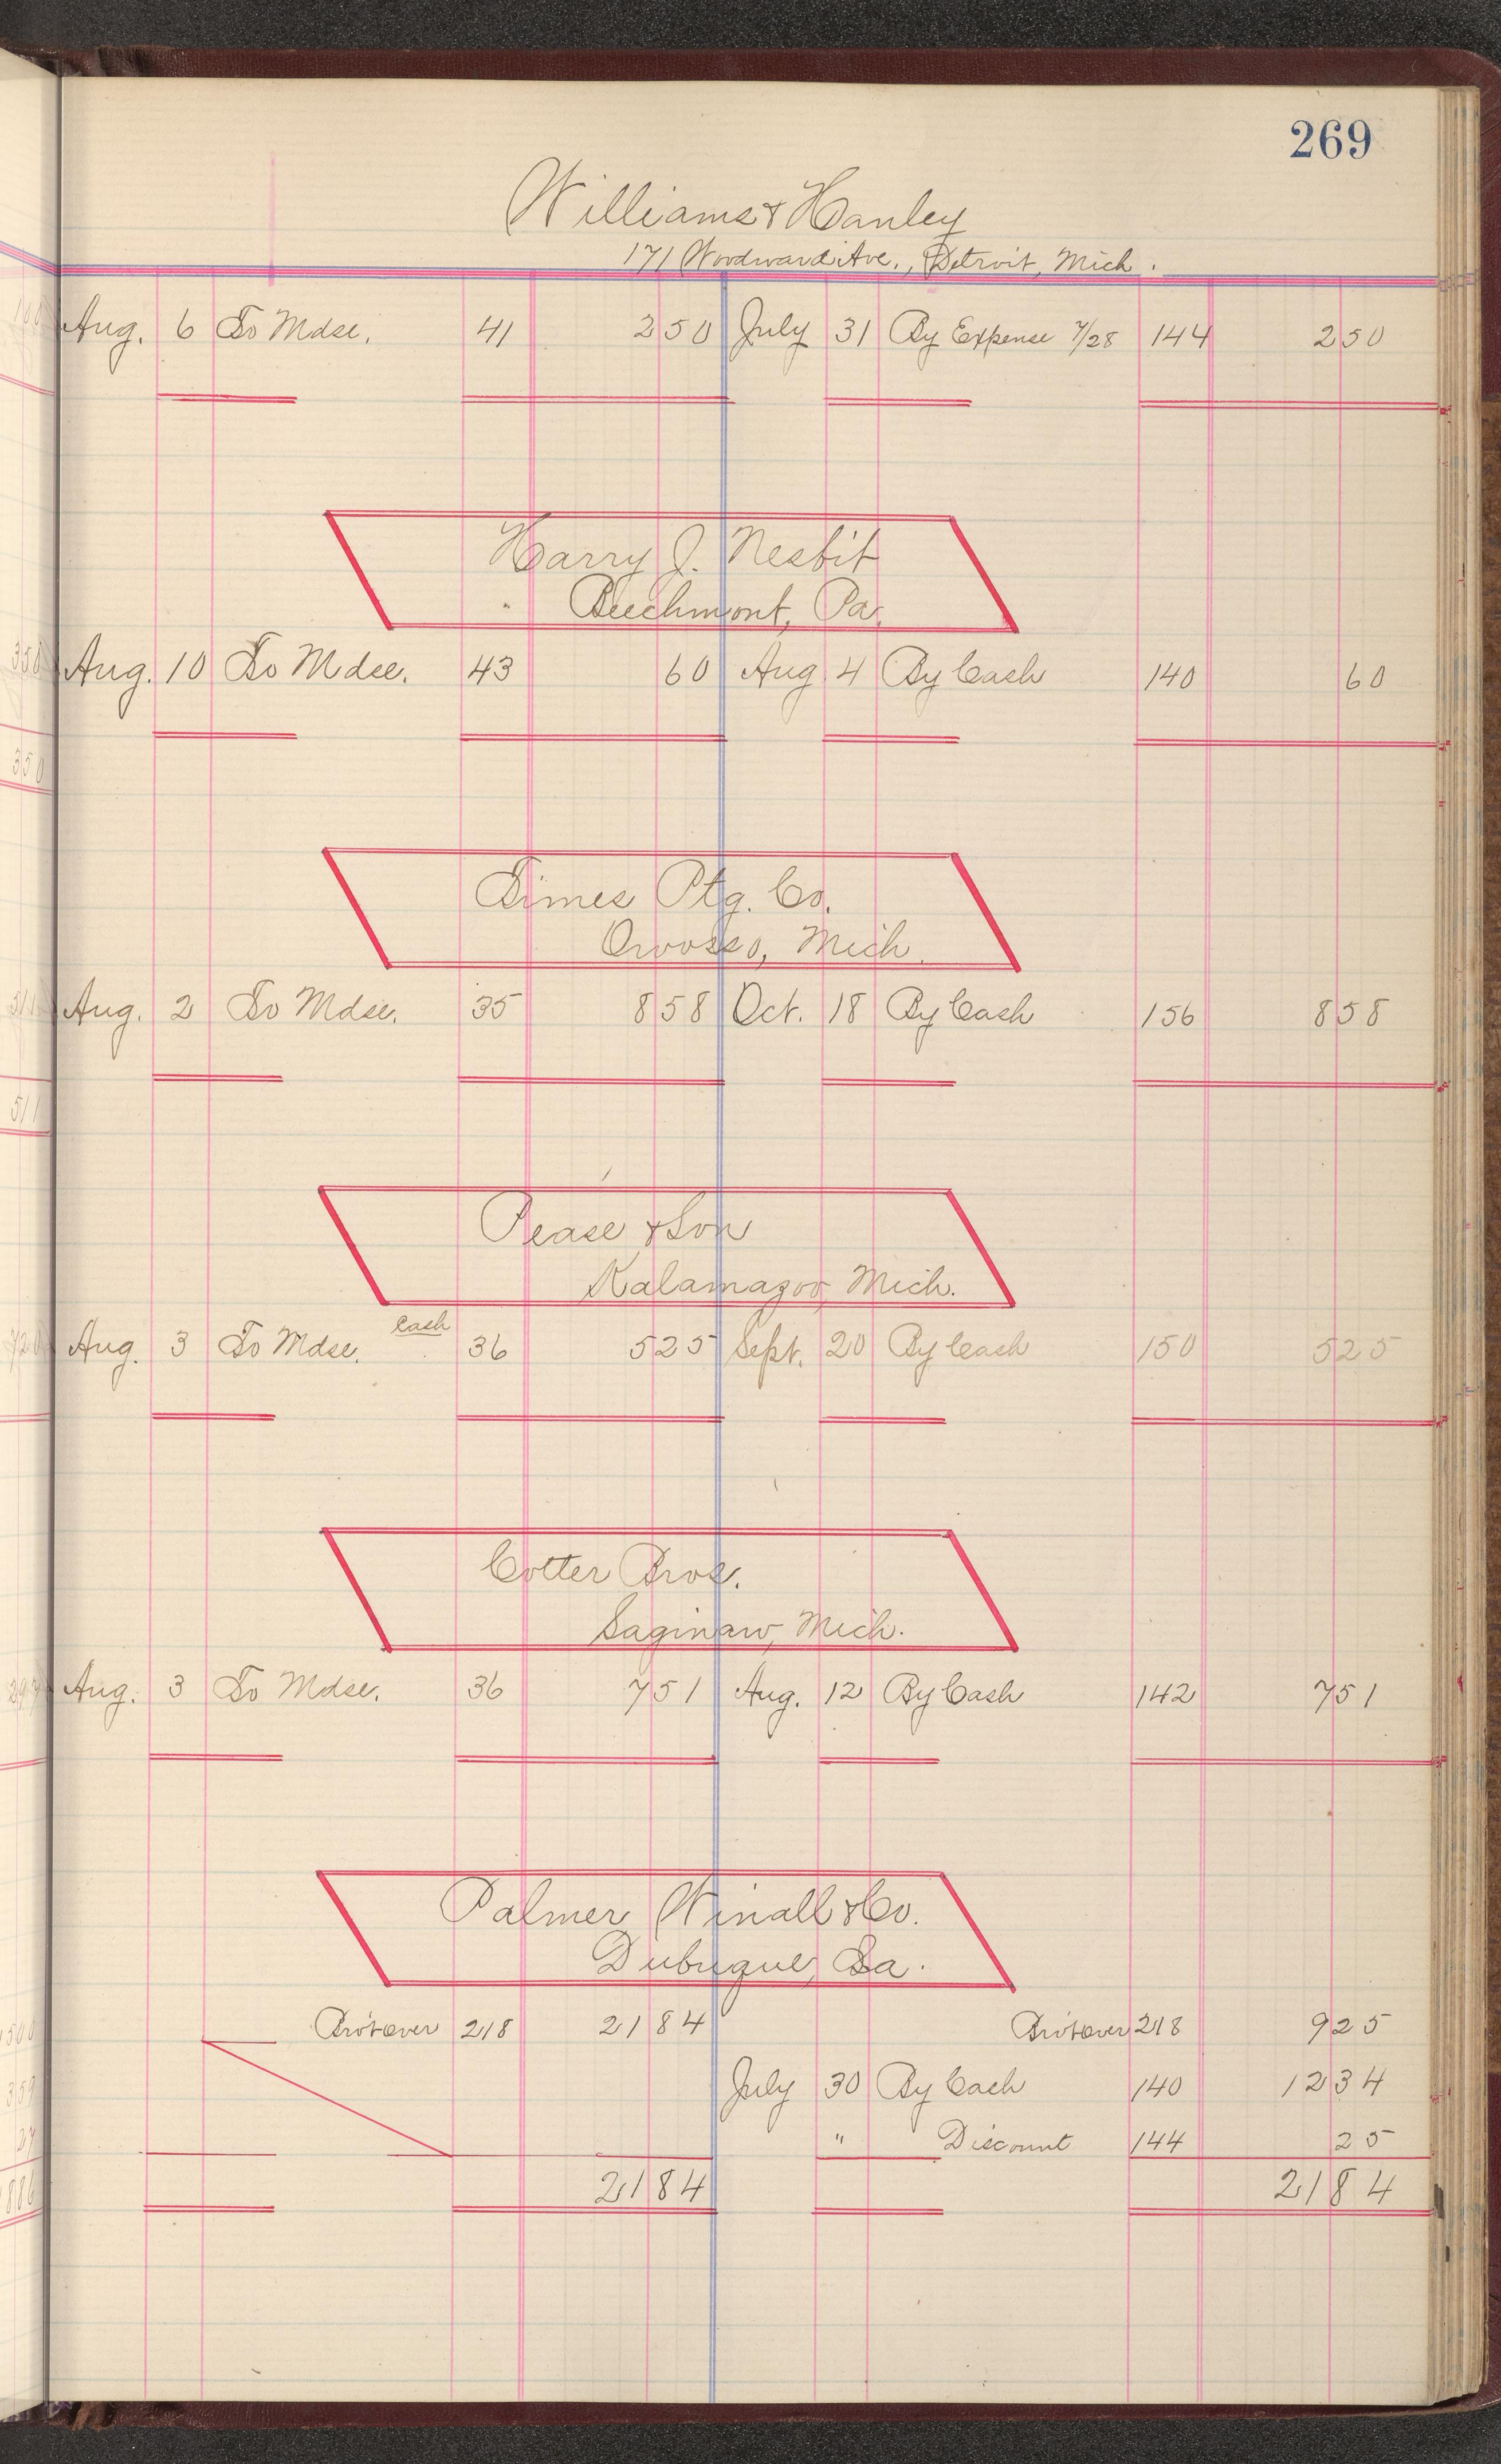 269
Williams & Hanley
171 Woodward Ave., Detroit, Mich.
Aug. 6 To Mdse. 41 250 July 31 By Expense 7/28 144 250
Harry J. Nesbit
Beechmont, Pa.
Aug. 10 To Mdse. 43 60 Aug 4 By Cash 140 60
Times Ptg. Co.
Owosso, Mich.
Aug. 2 To Mdse. 35 858 Oct. 18 By Cash 156 858
Pease & Son
Kalamazoo, Mich.
Aug. 3 To Mdse. Cash 36 525 Sept. 20 By Cash 150 525
Cotter Bros.
Saginaw, Mich.
Aug. 3 To Mdse. 36 751 Aug. 12 By Cash 142 751
Palmer, Winall & Co.
Dubuque, Ia.
Bro't over 218 2184 Bro't over 218 925
July 30 By Cash 140 1234
" Discount 144 25
2184 2184